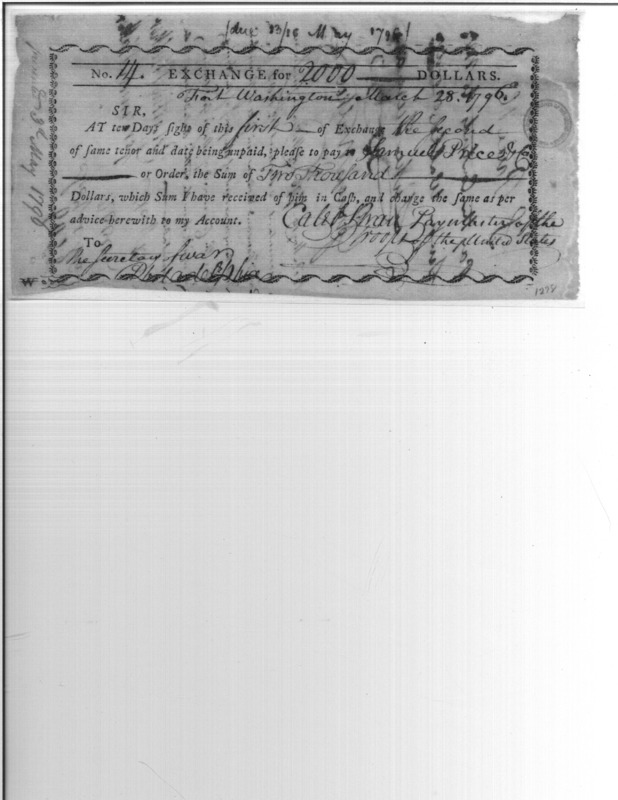 [due 13/16 May 1796]
No. 14. EXCHANGE for 2000 DOLLARS.
Fort Washington March 28. 1796.
SIR,
AT ten Days sight of this first of Exchange the second
of same tenor and date being unpaid, please to pay to Samuel Price & Co
or Order, the Sum of Two Thousand
Dollars, which Sum I have received of him in Cash, and charge the same as per
advice herewith to my Account.
Caleb Swan Paymaster of the
Troops of the United States
To
The Secretary of war
Philadelphia
W
1298